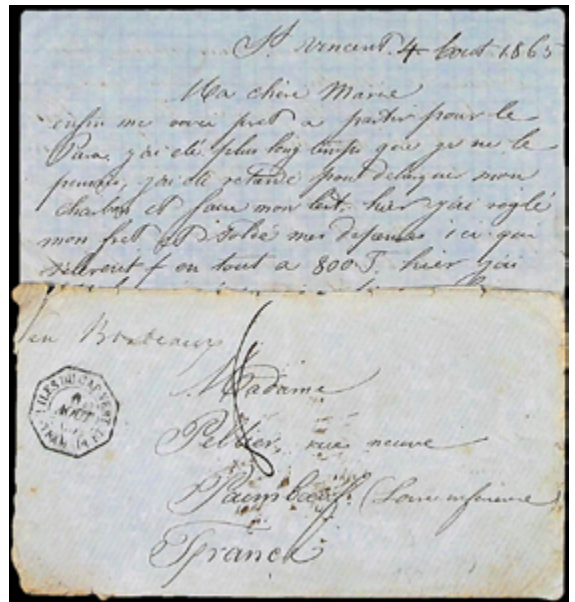 St Vincent 4 Aout 1865
Ma chère Marie
enfin me voici pret a partir pour le
Para, j'ai été plus long temps que je ne le
pensais, j'ai été retardé pour debarquer mon
charbon et faire mon lest. hier j'ai réglé
mon fret et soldé mes depenses ici qui
s'élevent en tout a 800 F. hier j'ai
Bordeaux
Madame
Peltier, rue neuve
Paimboeuf (Loire inférieure)
France
ILES DU CAP VERT
AOUT